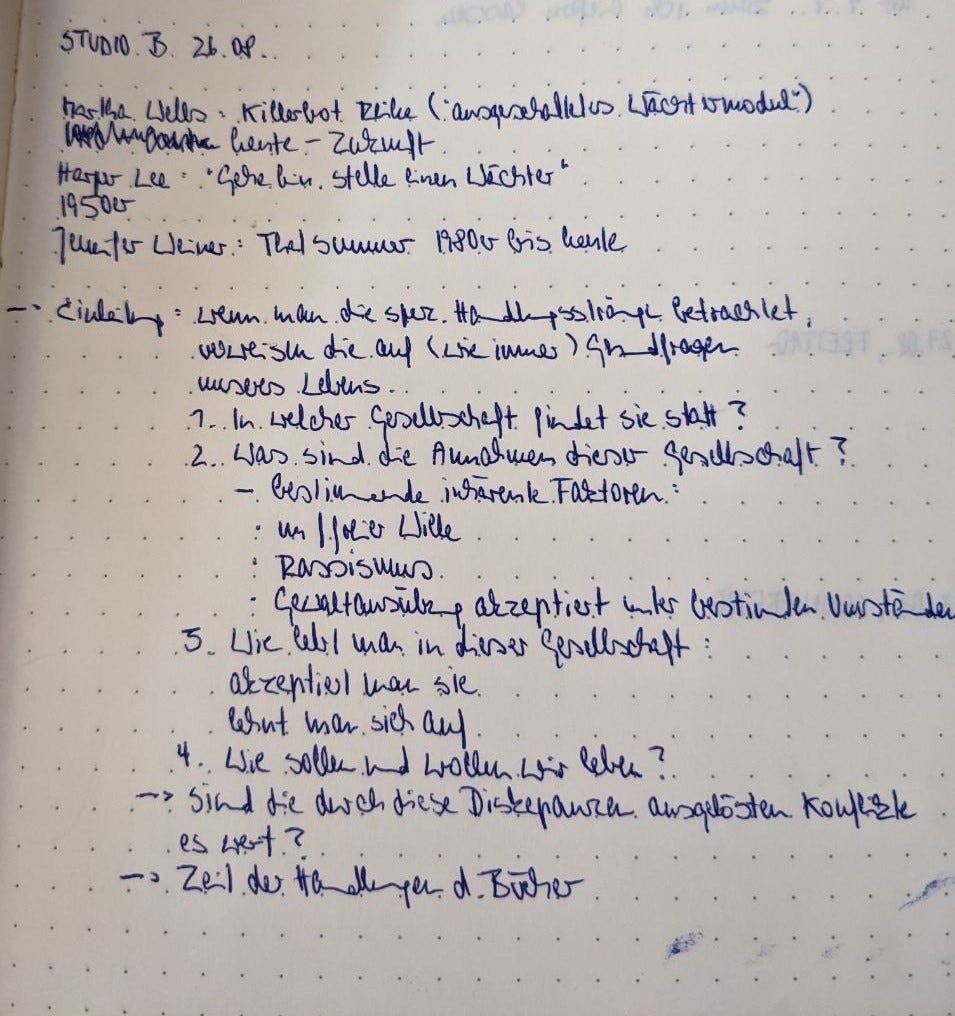 STUDIO B 26.08.
Martha Wells: Killerbot Reihe ("ausgeschaltetes Wächtermodul")
heute - Zukunft
Harper Lee: "Gehe hin, stelle einen Wächter"
1950er
Jennifer Weiner: That Summer 1980er bis heute
-> Einleitung: wenn man die spez. Handlungsstränge betrachtet,
verweisen die auf (wie immer) Grundfragen
unseres Lebens.
1. In welcher Gesellschaft findet sie statt?
2. Was sind die Annahmen dieser Gesellschaft?
- bestimmende inhärente Faktoren:
· un//freier Wille
: Rassismus
: Gewaltausübung akzeptiert unter bestimmten Umständen
3. Wie lebt man in dieser Gesellschaft:
akzeptiert man sie
lehnt man sich auf
4. Wie sollen und wollen wir leben?
-> Sind die durch diese Diskepanzen ausgelösten Konflikte
es wert?
-> Zeit der Handlungen d. Bücher